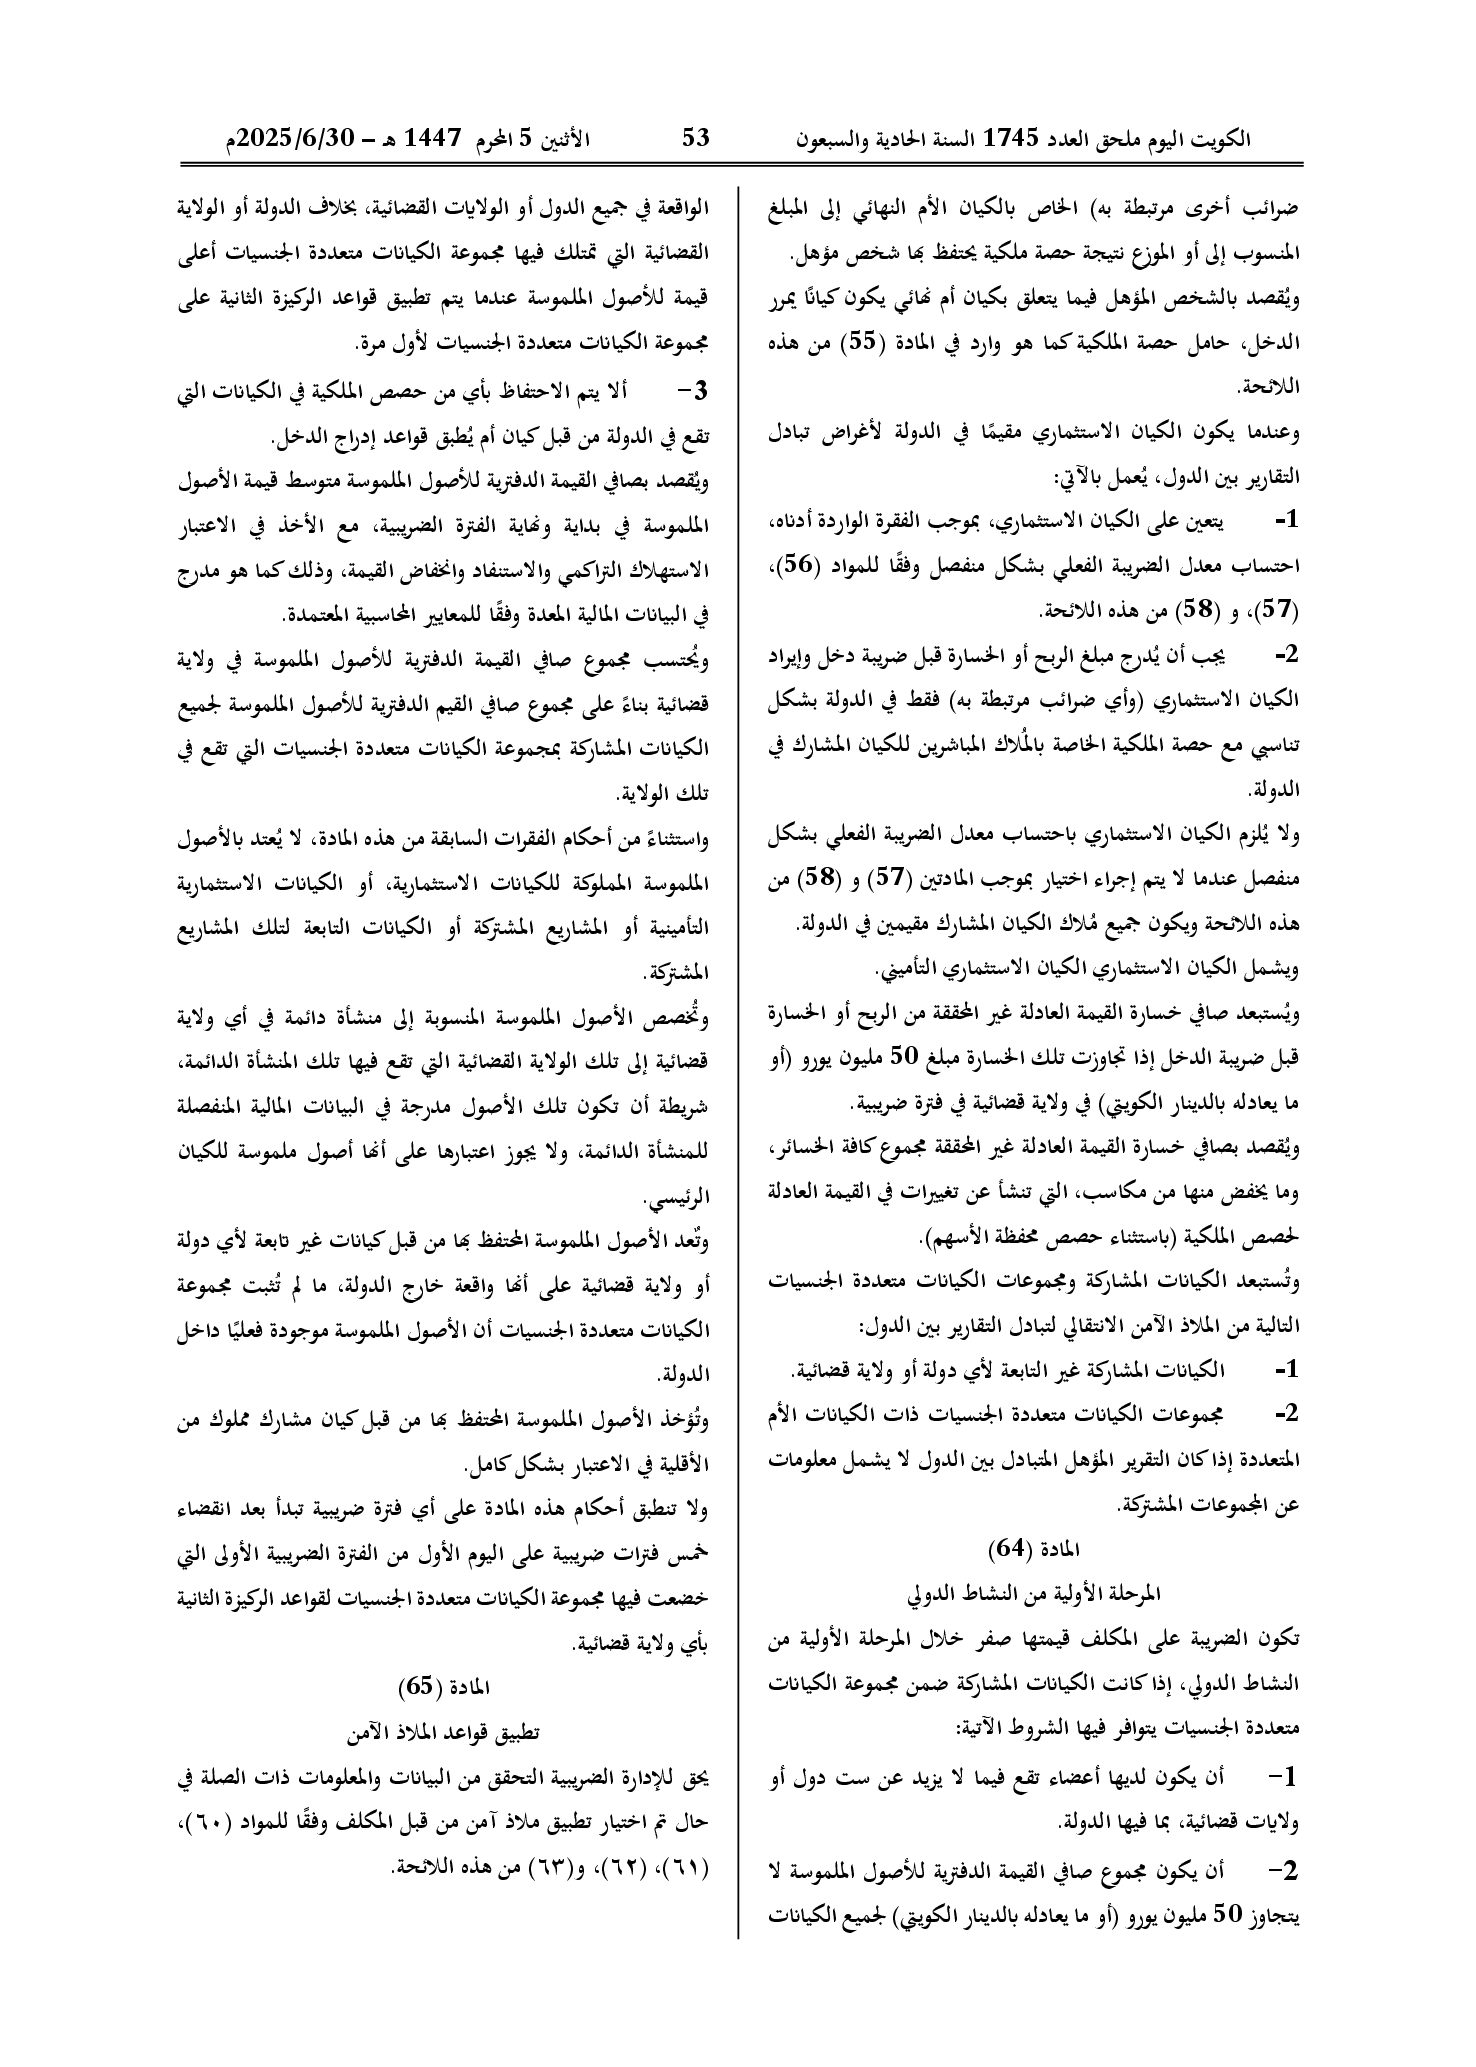 الكويت اليوم ملحق العدد 1745 السنة الحادية والسبعون
53
الأثنين 5 المحرم 1447 هـ – 2025/6/30م
ضرائب أخرى مرتبطة به) الخاص بالكيان الأم النهائي إلى المبلغ
المنسوب إلى أو الموزع نتيجة حصة ملكية يحتفظ بها شخص مؤهل.
ويُقصد بالشخص المؤهل فيما يتعلق بكيان أم نهائي يكون كيانًا يمرر
الدخل، حامل حصة الملكية كما هو وارد في المادة (55) من هذه
اللائحة.
وعندما يكون الكيان الاستثماري مقيمًا في الدولة لأغراض تبادل
التقارير بين الدول، يُعمل بالآتي:
1- يتعين على الكيان الاستثماري، بموجب الفقرة الواردة أدناه،
احتساب معدل الضريبة الفعلي بشكل منفصل وفقًا للمواد (56)،
(57)، و (58) من هذه اللائحة.
2- يجب أن يُدرج مبلغ الربح أو الخسارة قبل ضريبة دخل وإيراد
الكيان الاستثماري (وأي ضرائب مرتبطة به) فقط في الدولة بشكل
تناسبي مع حصة الملكية الخاصة بالمُلاك المباشرين للكيان المشارك في
الدولة.
ولا يُلزم الكيان الاستثماري باحتساب معدل الضريبة الفعلي بشكل
منفصل عندما لا يتم إجراء اختيار بموجب المادتين (57) و (58) من
هذه اللائحة ويكون جميع مُلاك الكيان المشارك مقيمين في الدولة.
ويشمل الكيان الاستثماري الكيان الاستثماري التأميني.
ويُستبعد صافي خسارة القيمة العادلة غير المحققة من الربح أو الخسارة
قبل ضريبة الدخل إذا تجاوزت تلك الخسارة مبلغ 50 مليون يورو (أو
ما يعادله بالدينار الكويتي) في ولاية قضائية في فترة ضريبية.
ويُقصد بصافي خسارة القيمة العادلة غير المحققة مجموع كافة الخسائر،
وما يخفض منها من مكاسب، التي تنشأ عن تغييرات في القيمة العادلة
لحصص الملكية (باستثناء حصص محفظة الأسهم).
وتُستبعد الكيانات المشاركة ومجموعات الكيانات متعددة الجنسيات
التالية من الملاذ الآمن الانتقالي لتبادل التقارير بين الدول:
1- الكيانات المشاركة غير التابعة لأي دولة أو ولاية قضائية.
2- مجموعات الكيانات متعددة الجنسيات ذات الكيانات الأم
المتعددة إذا كان التقرير المؤهل المتبادل بين الدول لا يشمل معلومات
عن المجموعات المشتركة.
المادة (64)
المرحلة الأولية من النشاط الدولي
تكون الضريبة على المكلف قيمتها صفر خلال المرحلة الأولية من
النشاط الدولي، إذا كانت الكيانات المشاركة ضمن مجموعة الكيانات
متعددة الجنسيات يتوافر فيها الشروط الآتية:
1– أن يكون لديها أعضاء تقع فيما لا يزيد عن ست دول أو
ولايات قضائية، بما فيها الدولة.
2– أن يكون مجموع صافي القيمة الدفترية للأصول الملموسة لا
يتجاوز 50 مليون يورو (أو ما يعادله بالدينار الكويتي) لجميع الكيانات
الواقعة في جميع الدول أو الولايات القضائية، بخلاف الدولة أو الولاية
القضائية التي تمتلك فيها مجموعة الكيانات متعددة الجنسيات أعلى
قيمة للأصول الملموسة عندما يتم تطبيق قواعد الركيزة الثانية على
مجموعة الكيانات متعددة الجنسيات لأول مرة.
3– ألا يتم الاحتفاظ بأي من حصص الملكية في الكيانات التي
تقع في الدولة من قبل كيان أم يُطبق قواعد إدراج الدخل.
ويُقصد بصافي القيمة الدفترية للأصول الملموسة متوسط قيمة الأصول
الملموسة في بداية ونهاية الفترة الضريبية، مع الأخذ في الاعتبار
الاستهلاك التراكمي والاستنفاد وانخفاض القيمة، وذلك كما هو مدرج
في البيانات المالية المعدة وفقًا للمعايير المحاسبية المعتمدة.
ويُحتسب مجموع صافي القيمة الدفترية للأصول الملموسة في ولاية
قضائية بناءً على مجموع صافي القيم الدفترية للأصول الملموسة لجميع
الكيانات المشاركة بمجموعة الكيانات متعددة الجنسيات التي تقع في
تلك الولاية.
واستثناءً من أحكام الفقرات السابقة من هذه المادة، لا يُعتد بالأصول
الملموسة المملوكة للكيانات الاستثمارية، أو الكيانات الاستثمارية
التأمينية أو المشاريع المشتركة أو الكيانات التابعة لتلك المشاريع
المشتركة.
وتُخصص الأصول الملموسة المنسوبة إلى منشأة دائمة في أي ولاية
قضائية إلى تلك الولاية القضائية التي تقع فيها تلك المنشأة الدائمة،
شريطة أن تكون تلك الأصول مدرجة في البيانات المالية المنفصلة
للمنشأة الدائمة، ولا يجوز اعتبارها على أنها أصول ملموسة للكيان
الرئيسي.
وتُعد الأصول الملموسة المحتفظ بها من قبل كيانات غير تابعة لأي دولة
أو ولاية قضائية على أنها واقعة خارج الدولة، ما لم تُثبت مجموعة
الكيانات متعددة الجنسيات أن الأصول الملموسة موجودة فعليًا داخل
الدولة.
وتُؤخذ الأصول الملموسة المحتفظ بها من قبل كيان مشارك مملوك من
الأقلية في الاعتبار بشكل كامل.
ولا تنطبق أحكام هذه المادة على أي فترة ضريبية تبدأ بعد انقضاء
خمس فترات ضريبية على اليوم الأول من الفترة الضريبية الأولى التي
خضعت فيها مجموعة الكيانات متعددة الجنسيات لقواعد الركيزة الثانية
بأي ولاية قضائية.
المادة (65)
تطبيق قواعد الملاذ الآمن
يحق للإدارة الضريبية التحقق من البيانات والمعلومات ذات الصلة في
حال تم اختيار تطبيق ملاذ آمن من قبل المكلف وفقًا للمواد (٦٠)،
(٦١)، (٦٢)، و(٦٣) من هذه اللائحة.